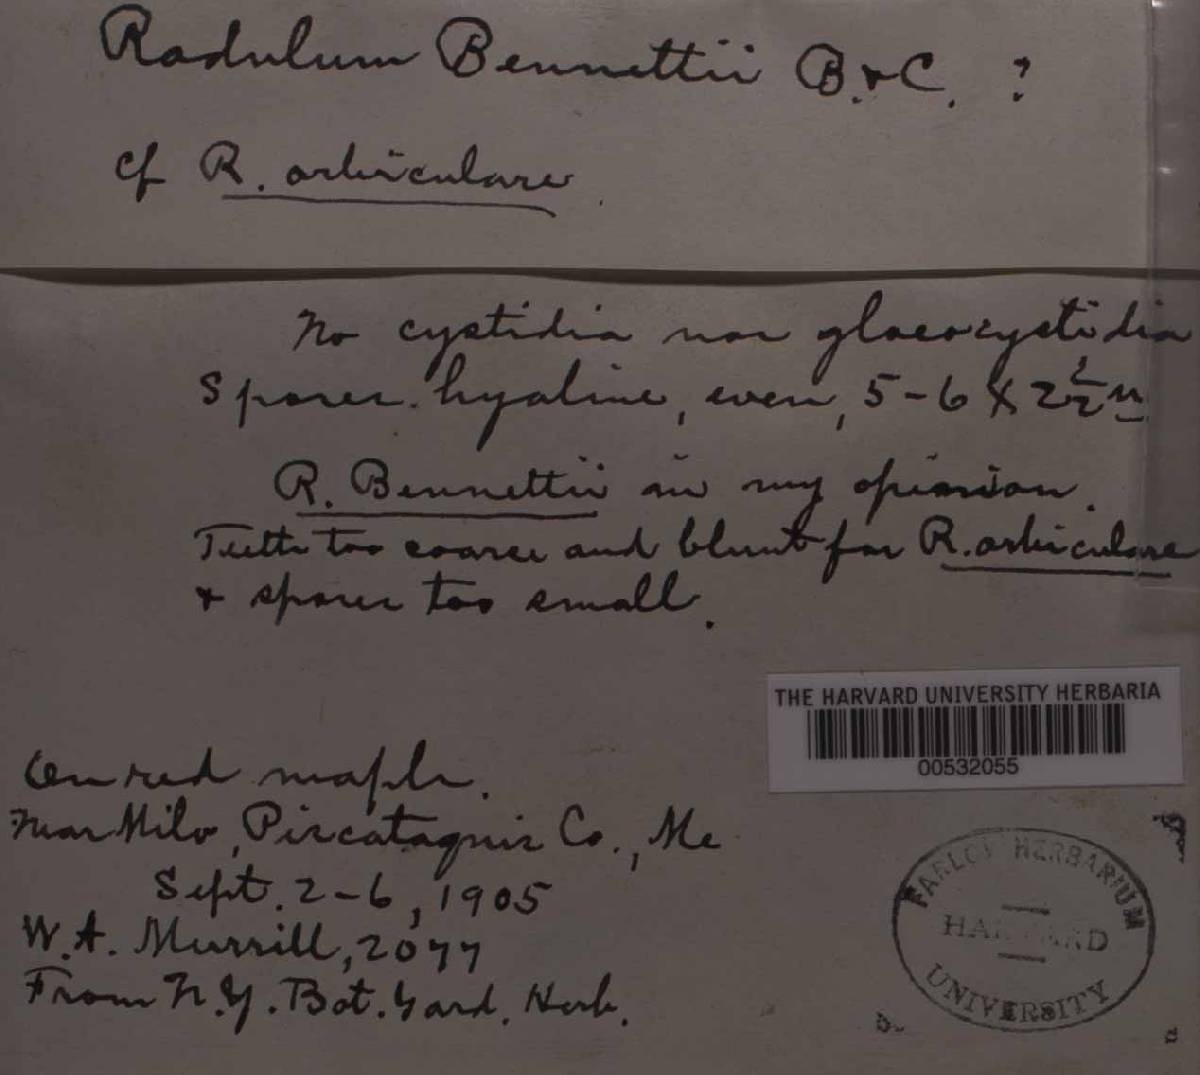 Radulum Bennettii B. & C. ?
cf R. orbiculare
No cystidia nor gloeocystidia
Spores hyaline, even, 5-6 X 2½ u
R. Bennettii in my opinion.
Teeth too coarse and blunt for R. orbiculare
& spores too small.
THE HARVARD UNIVERSITY HERBARIA
00532055
On red maple.
Near Milo, Piscataquis Co., Me
Sept. 2-6, 1905
W.A. Murrill, 2077
From N.Y. Bot. Gard. Herb.
FARLOW HERBARIUM
HARVARD
UNIVERSITY